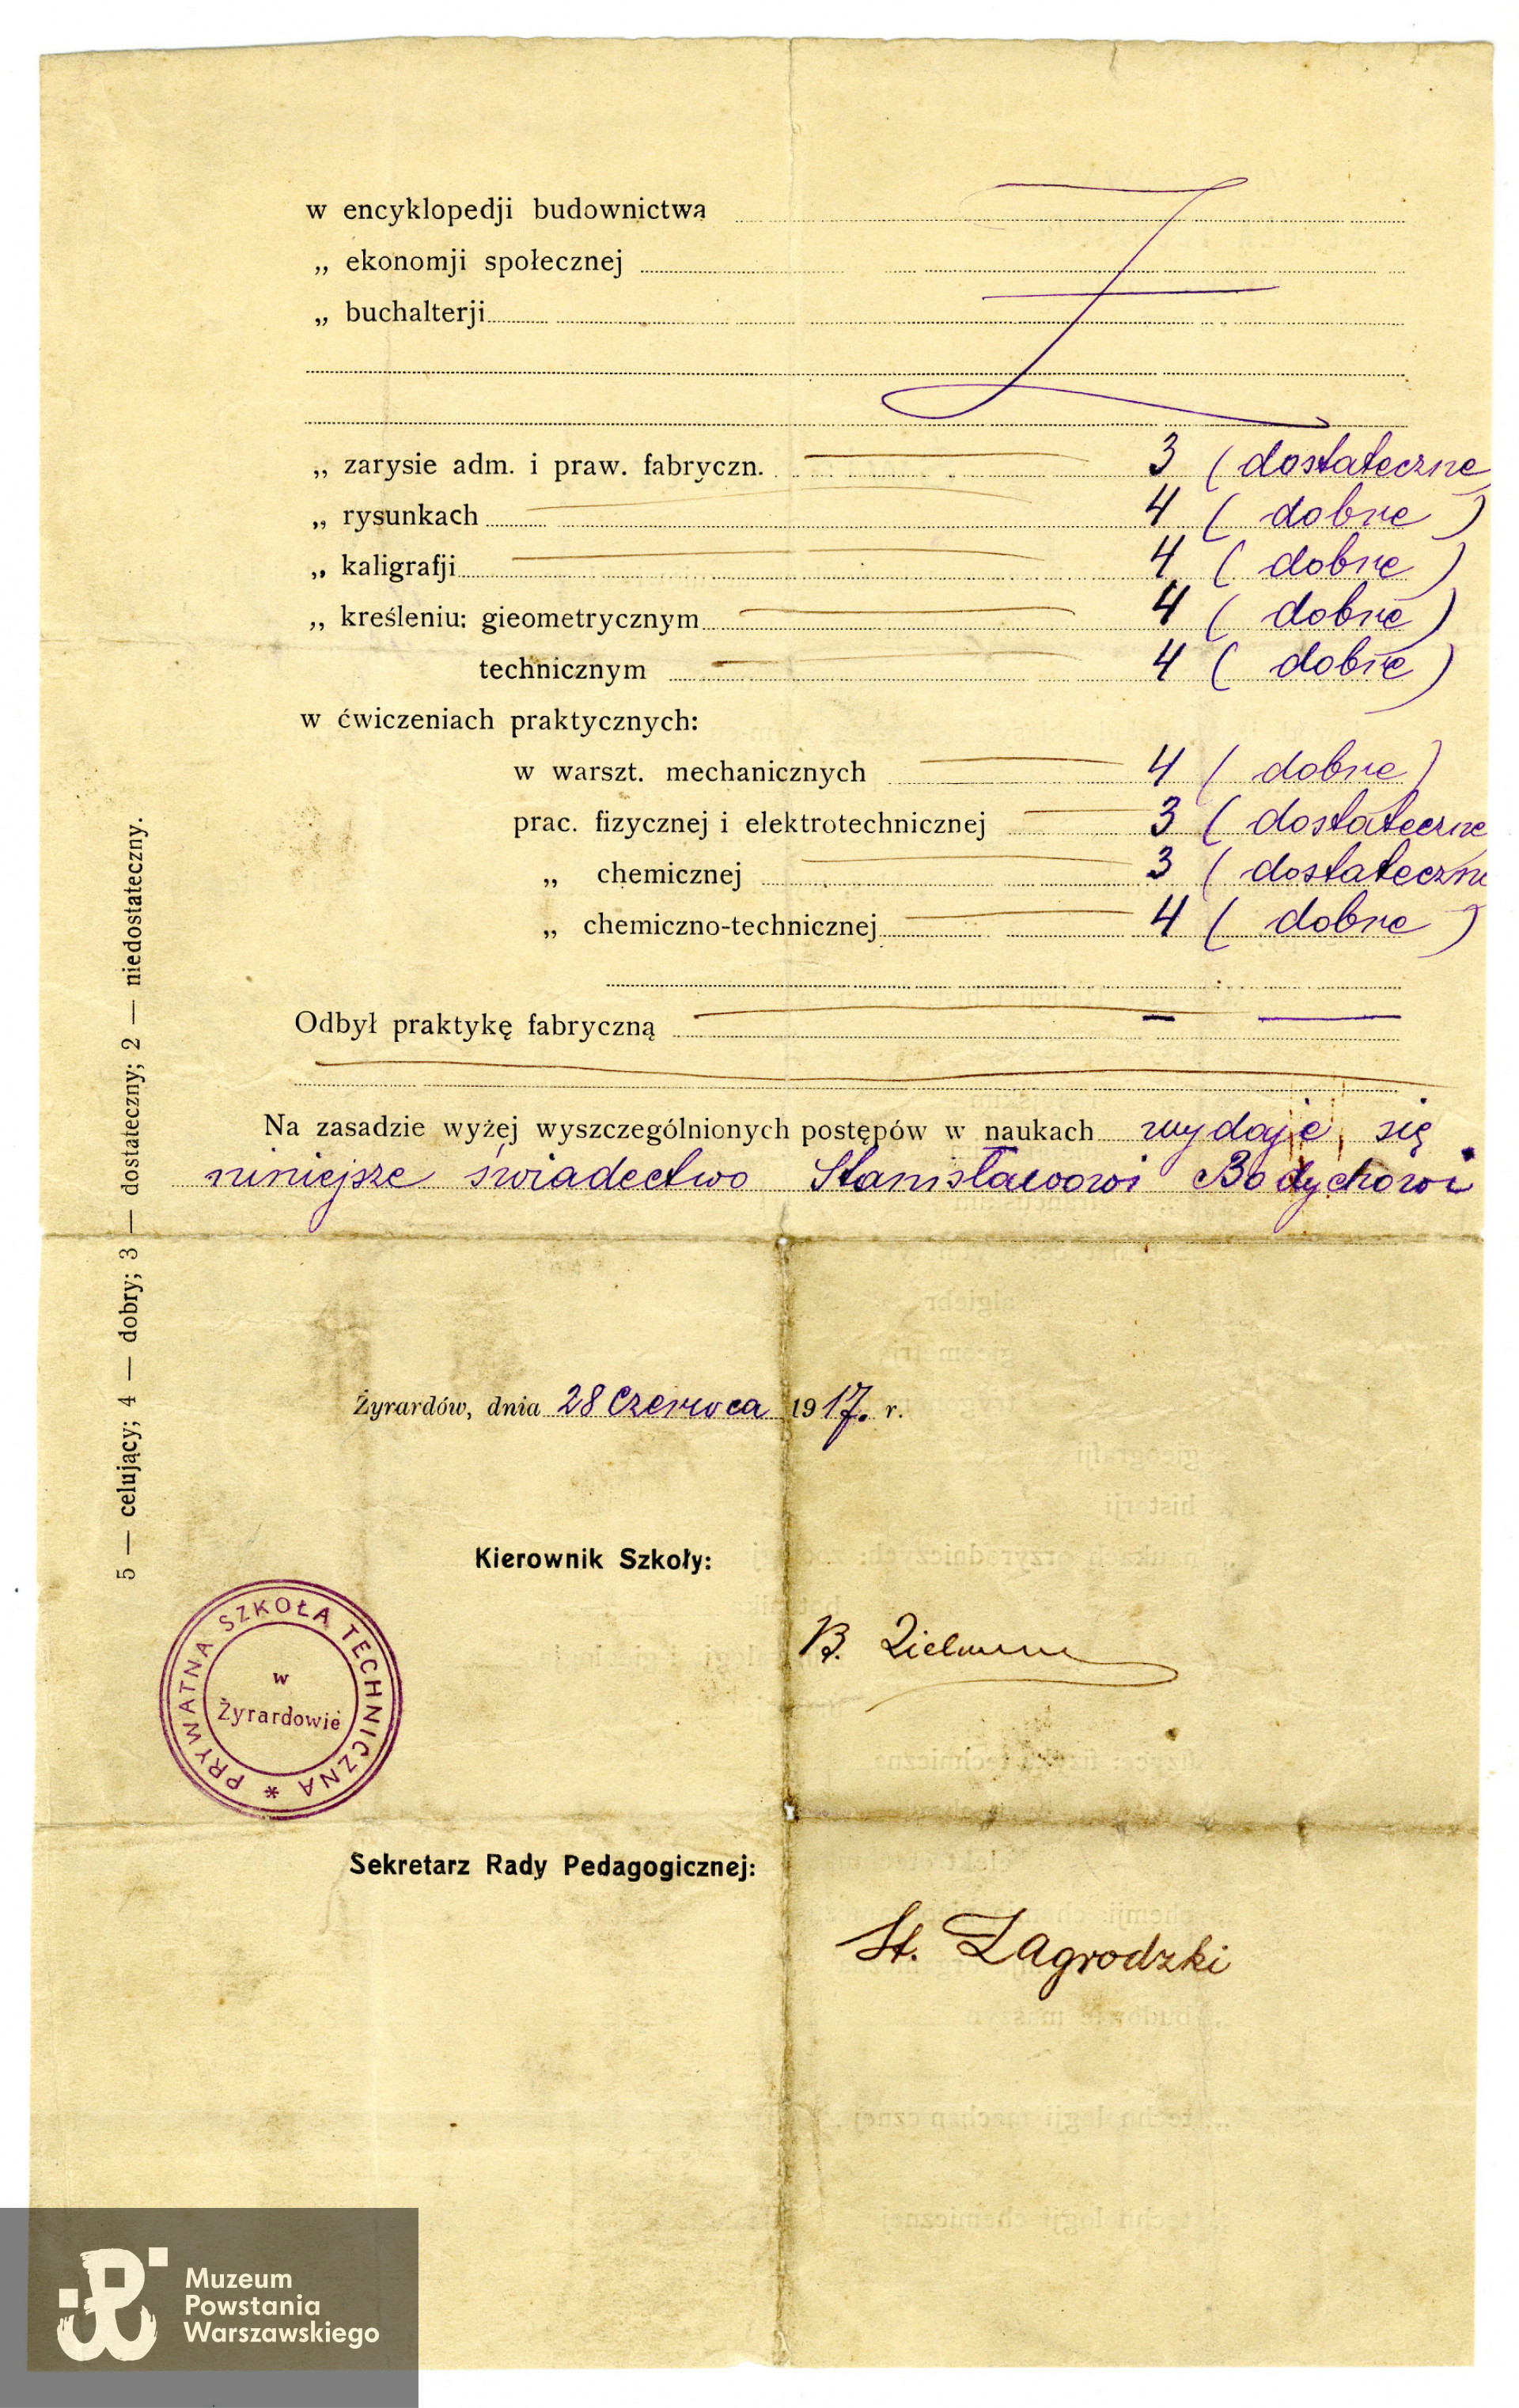 w encyklopedji budownictwa
„ ekonomji społecznej
„ buchalterji
„ zarysie adm. i praw. fabryczn. 3 (dostateczne
„ rysunkach 4 ( dobre )
„ kaligrafji 4 ( dobre )
„ kreśleniu: gieometrycznym 4 ( dobre )
technicznym 4 ( dobre )
w ćwiczeniach praktycznych:
w warszt. mechanicznych 4 ( dobre )
prac. fizycznej i elektrotechnicznej 3 ( dostateczne
„ chemicznej 3 ( dostateczne
„ chemiczno-technicznej 4 ( dobre )
Odbył praktykę fabryczną — —
Na zasadzie wyżej wyszczególnionych postępów w naukach wydaje się
niniejsze świadectwo Stanisławowi Bodychowi
5 — celujący; 4 — dobry; 3 — dostateczny; 2 — niedostateczny.
Żyrardów, dnia 28 Czerwca 1917. r.
Kierownik Szkoły:
B.
PRYWATNA SZKOŁA TECHNICZNA *
w
Żyrardowie
Sekretarz Rady Pedagogicznej:
St. Zagrodzki
Muzeum
Powstania
Warszawskiego